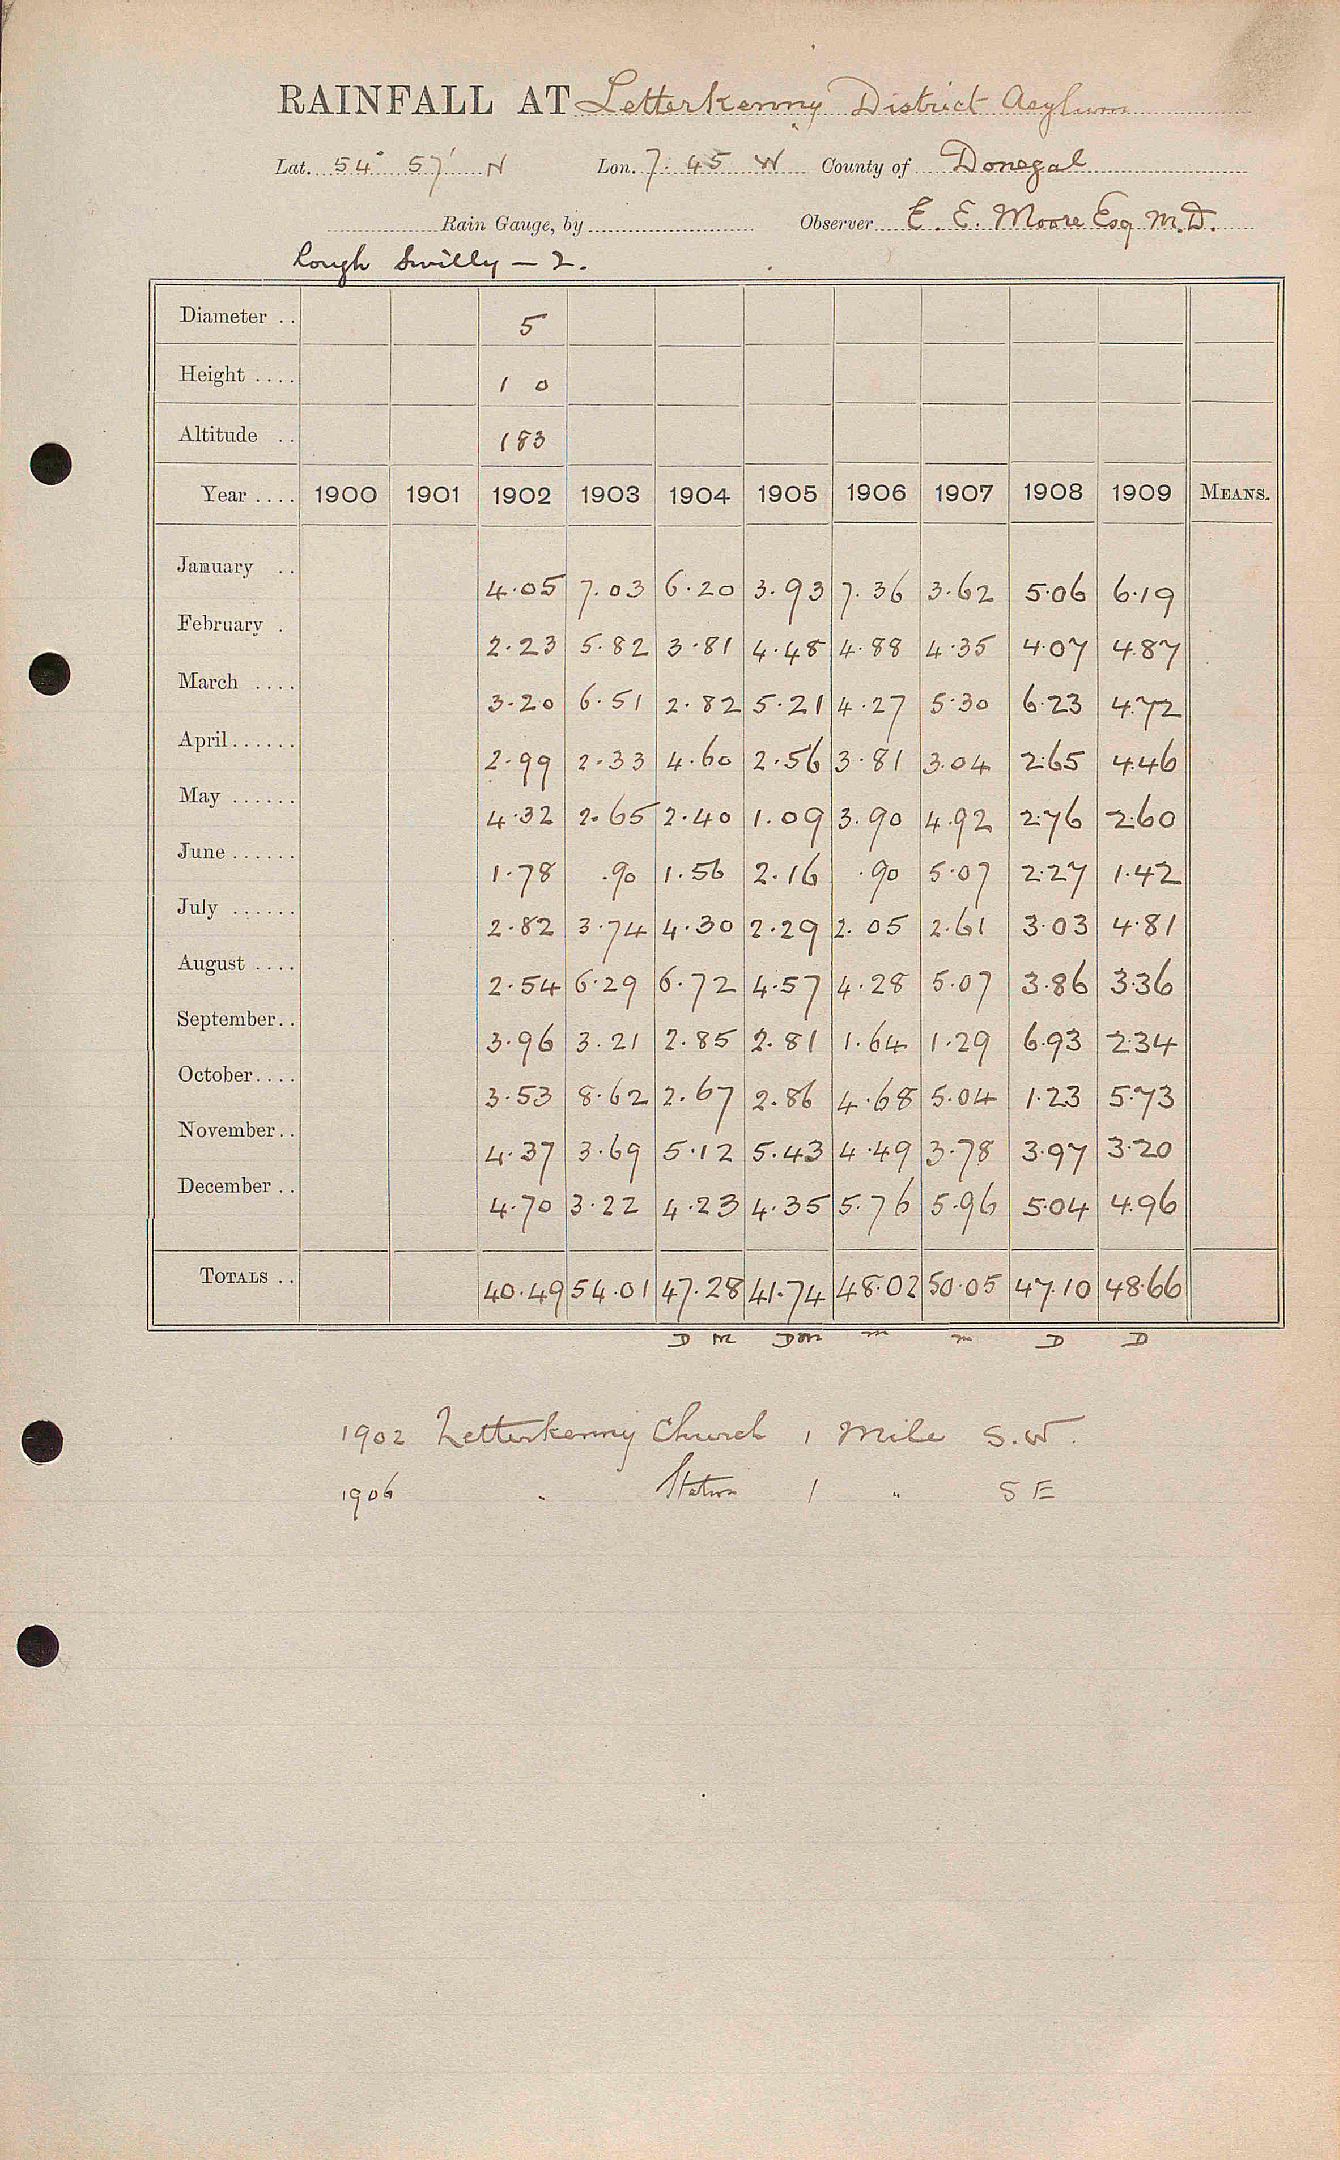 RAINFALL AT Letterkenny District Asylum
Lat. 54° 57' N Lon. 7. 45 W County of Donegal
Rain Gauge, by Observer E. E. Moore Esq M.D.
Lough Swilly — 2.
Diameter .. 5
Height .... 1 0
Altitude .. 183
Year .... 1900 1901 1902 1903 1904 1905 1906 1907 1908 1909 MEANS.
January .. 4.05 7.03 6.20 3.93 7.36 3.62 5.06 6.19
February . 2.23 5.82 3.81 4.48 4.88 4.35 4.07 4.87
March .... 3.20 6.51 2.82 5.21 4.27 5.30 6.23 4.72
April...... 2.99 2.33 4.60 2.56 3.81 3.04 2.65 4.46
May ...... 4.32 2.65 2.40 1.09 3.90 4.92 2.76 2.60
June...... 1.78 .90 1.56 2.16 .90 5.07 2.27 1.42
July ...... 2.82 3.74 4.30 2.29 2.05 2.61 3.03 4.81
August .... 2.54 6.29 6.72 4.57 4.28 5.07 3.86 3.36
September.. 3.96 3.21 2.85 2.81 1.64 1.29 6.93 2.34
October.... 3.53 8.62 2.67 2.86 4.68 5.04 1.23 5.73
November.. 4.37 3.69 5.12 5.43 4.49 3.78 3.97 3.20
December .. 4.70 3.22 4.23 4.35 5.76 5.96 5.04 4.96
TOTALS .. 40.49 54.01 47.28 41.74 48.02 50.05 47.10 48.66
D M DM m m D D
1902 Letterkenny Church 1 Mile S.W.
1906 " Station 1 " S E